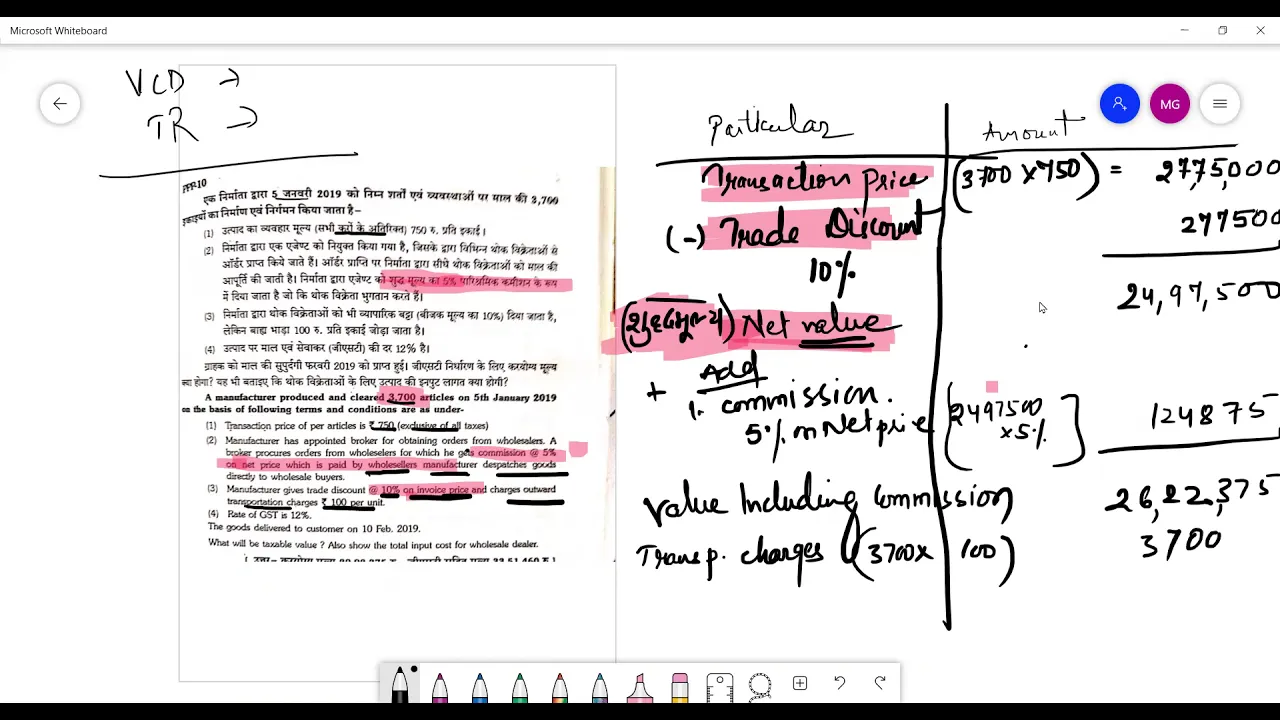 Microsoft Whiteboard
VCD →
TR →
PPR10
एक निर्माता द्वारा 5 जनवरी 2019 को निम्न शर्तों एवं व्यवस्थाओं पर माल की 3,700
इकाइयों का निर्माण एवं निर्गमन किया जाता है-
(1) उत्पाद का व्यवहार मूल्य (सभी करों के अतिरिक्त) 750 रु. प्रति इकाई।
(2) निर्माता द्वारा एक एजेण्ट को नियुक्त किया गया है, जिसके द्वारा विभिन्न थोक विक्रेताओं से
ऑर्डर प्राप्त किये जाते हैं। ऑर्डर प्राप्ति पर निर्माता द्वारा सीधे थोक विक्रेताओं को माल की
आपूर्ति की जाती है। निर्माता द्वारा एजेण्ट को शुद्ध मूल्य का 5% पारिश्रमिक कमीशन के रूप
में दिया जाता है जो कि थोक विक्रेता भुगतान करते हैं।
(3) निर्माता द्वारा थोक विक्रेताओं को भी व्यापारिक बट्टा (बीजक मूल्य का 10%) दिया जाता है,
लेकिन बाह्य भाड़ा 100 रु. प्रति इकाई जोड़ा जाता है।
(4) उत्पाद पर माल एवं सेवाकर (जीएसटी) की दर 12% है।
ग्राहक को माल की सुपुर्दगी फरवरी 2019 को प्राप्त हुई। जीएसटी निर्धारण के लिए करयोग्य मूल्य
क्या होगा? यह भी बताइए कि थोक विक्रेताओं के लिए उत्पाद की इनपुट लागत क्या होगी?
A manufacturer produced and cleared 3,700 articles on 5th January 2019
on the basis of following terms and conditions are as under-
(1) Transaction price of per articles is ₹ 750 (exclusive of all taxes)
(2) Manufacturer has appointed broker for obtaining orders from wholesalers. A
broker procures orders from wholeselers for which he gets commission @ 5%
on net price which is paid by wholesellers manufacturer despatches goods
directly to wholesale buyers.
(3) Manufacturer gives trade discount @ 10% on invoice price and charges outward
transportation charges ₹ 100 per unit.
(4) Rate of GST is 12%.
The goods delivered to customer on 10 Feb. 2019.
What will be taxable value ? Also show the total input cost for wholesale dealer.
MG
Particular Amount
Transaction price (3700 × 750) = 2775000
(-) Trade Discount 277500
10%
24,97,500
(शुद्ध मूल्य) Net value
+ Add
1. commission.
5% on Net price [2497500 × 5%] 124875
Value Including Commission 26,22,375
Transp. charges (3700 × 100) 3700